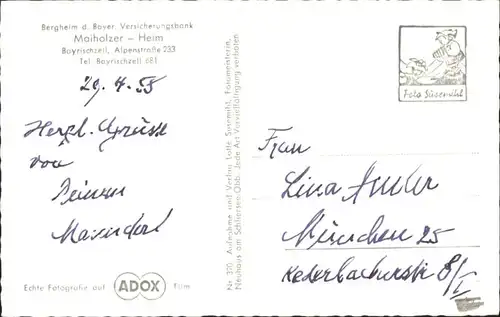 Bergheim d. Bayer. Versicherungsbank
Maiholzer – Heim
Bayrischzell, Alpenstraße 233
Tel. Bayrischzell 681
29. 4. 55
Herzl. Grüsse
von
Deinem
Foto Susemihl
Nr. 370 Aufnahme und Verlag Lotte Susemihl, Fotomeisterin,
Neuhaus am Schliersee-Obb. Jede Art Vervielfältigung verboten
Frau
Lina
München 25
8/I
Echte Fotografie auf ADOX Film